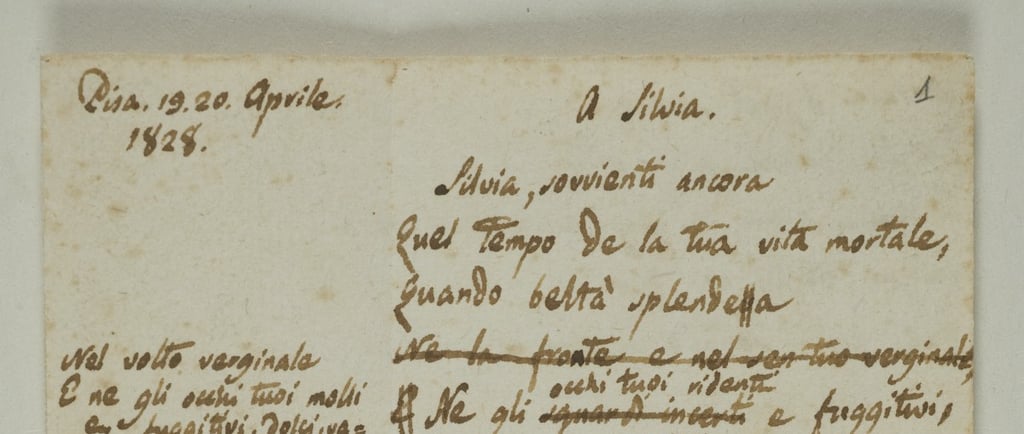 Pisa. 19. 20. Aprile.
1828.
1
A Silvia.
Silvia, sovvienti ancora
Quel tempo de la tua vita mortale,
Quando beltà splendea
Ne la fronte e nel sen tuo verginale,
occhi tuoi ridenti
Ne gli sguardi incerti e fuggitivi,
Nel volto verginale
E ne gli occhi tuoi molli
fuggitivi. Dolci, va=